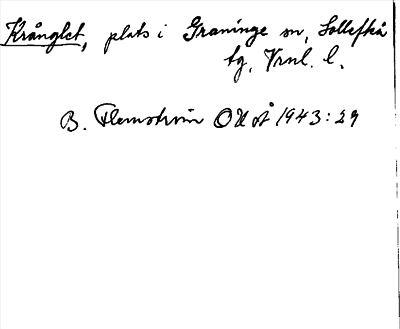 Krånglet, plats i Graninge sn, Sollefteå
tg. Vrnl. l.
B. Flemström OUÅ 1943:29